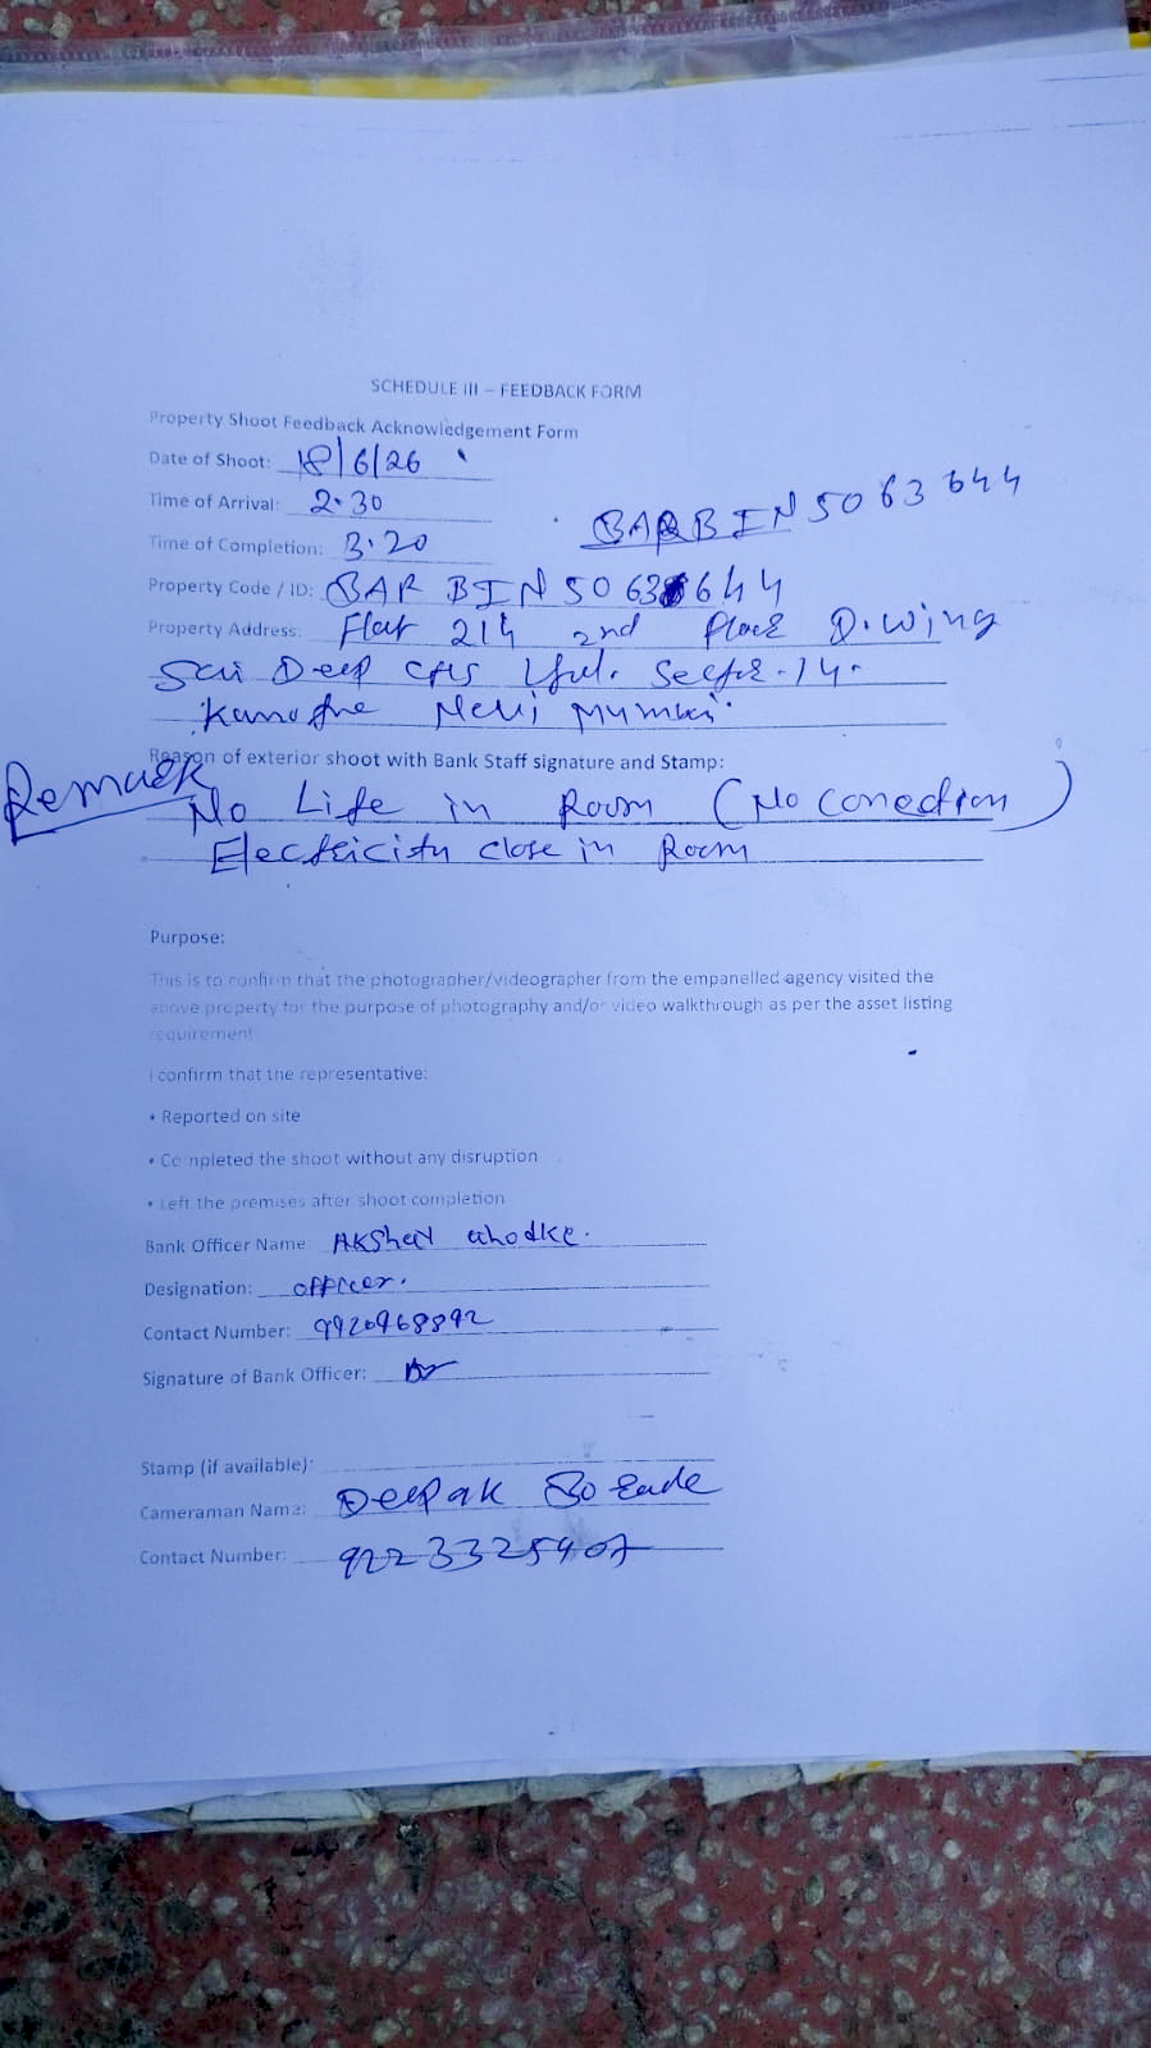 SCHEDULE III – FEEDBACK FORM
Property Shoot Feedback Acknowledgement Form
Date of Shoot: 18/6/26
Time of Arrival: 2.30
BARBIN5063644
Time of Completion: 3.20
Property Code / ID: BARBIN5063644
Property Address: Flat 214 2nd D.wing
Sai Deep CHS Sector-14.
Navi Mumbai.
Reason of exterior shoot with Bank Staff signature and Stamp:
Remark
No Life in Room (No conection)
Electricity close in Room
Purpose:
This is to confirm that the photographer/videographer from the empanelled agency visited the
above property for the purpose of photography and/or video walkthrough as per the asset listing
requirement
I confirm that the representative:
• Reported on site
• Completed the shoot without any disruption
• Left the premises after shoot completion
Bank Officer Name: Akshay
Designation: officer.
Contact Number: 9920968892
Signature of Bank Officer:
Stamp (if available):
Cameraman Name: Deepak Borade
Contact Number: 9223325407